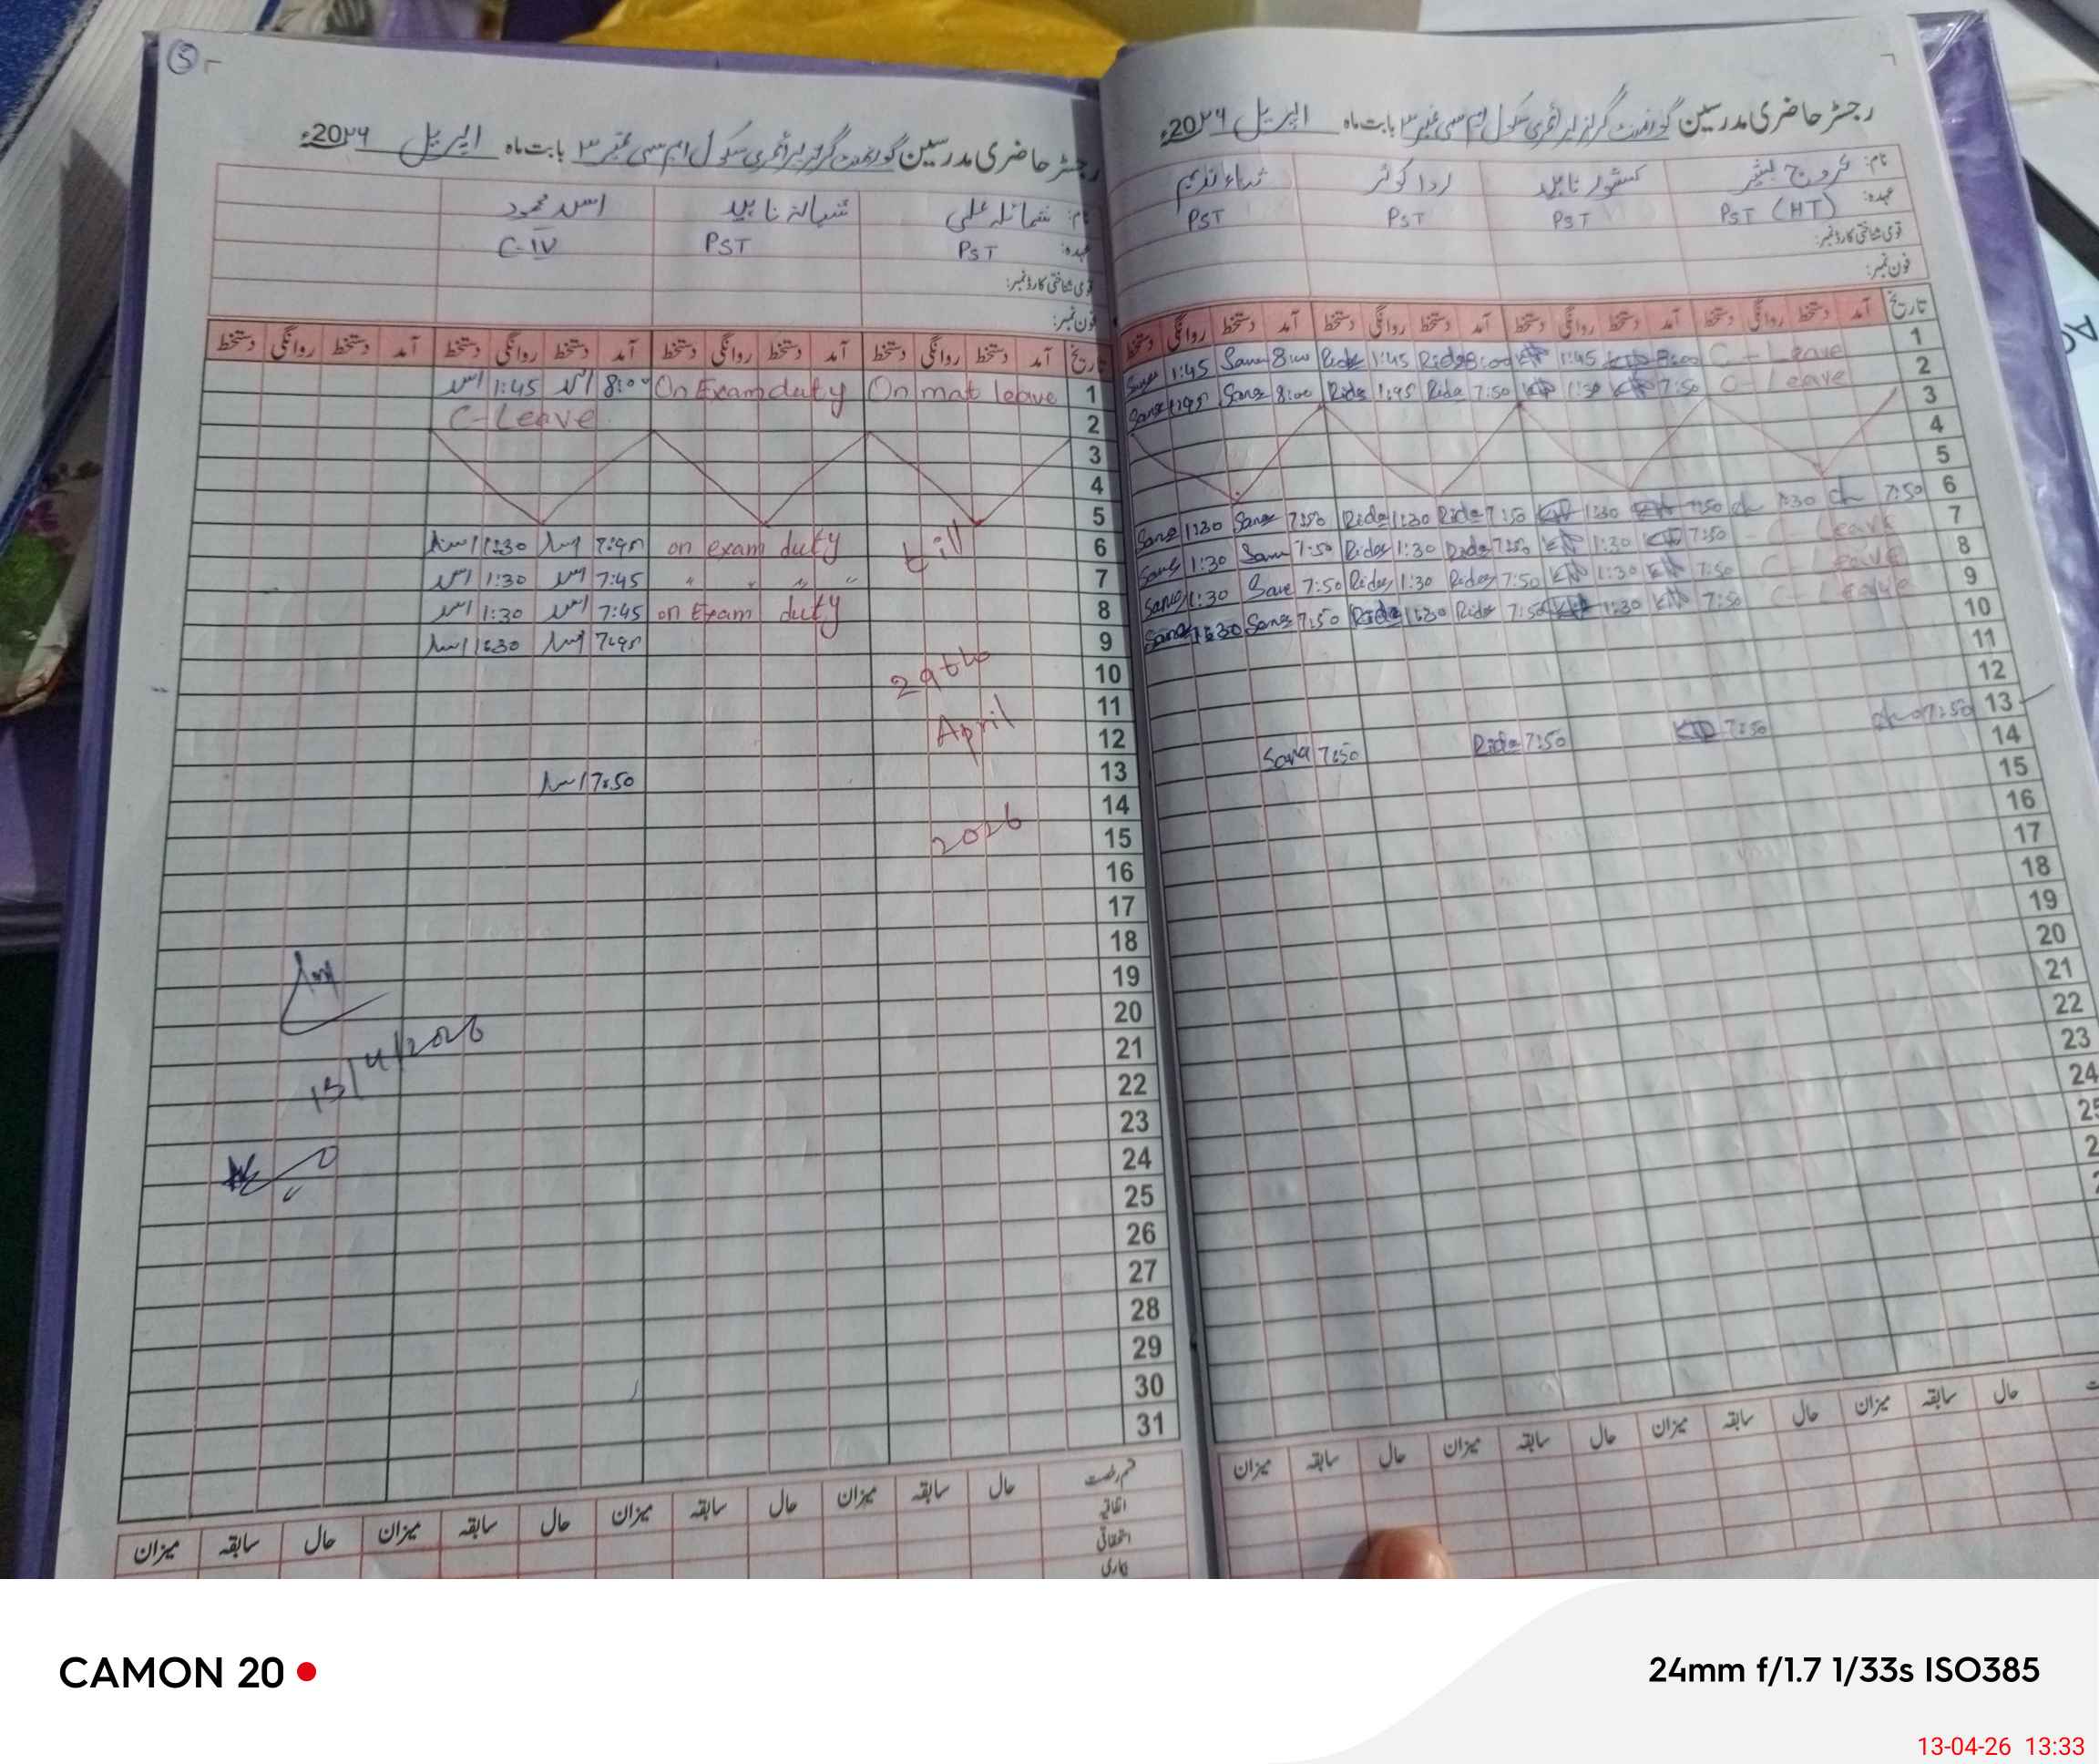 رجسٹر حاضری مدرسین گورنمنٹ گرلز پرائمری سکول ایم سی نمبر ۳ بابت ماہ اپریل 20۲۶ء
نام: عروج بشیر کشور ناہید ردا کوثر ثناء ندیم
عہدہ: PST (HT) PST PST PST
قومی شناختی کارڈ نمبر:
فون نمبر:
تاریخ آمد دستخط روانگی دستخط آمد دستخط روانگی دستخط آمد دستخط روانگی دستخط آمد دستخط روانگی دستخط
1 C-Leave 8:00 1:45 8:00 Rida 1:45 Rida 8:00 Sana 1:45 Sana
2 C-Leave 7:50 1:30 7:50 Rida 1:45 Rida 8:00 Sana 1:45 Sana
3
4
5
6 7:50 1:30 7:50 1:30 7:50 Rida 1:30 Rida 7:50 Sana 1:30 Sana
7 C-Leave 7:50 1:30 7:50 Rida 1:30 Rida 7:50 Sana 1:30 Sana
8 C-Leave 7:50 1:30 7:50 Rida 1:30 Rida 7:50 Sana 1:30 Sana
9 C-Leave 7:50 1:30 7:50 Rida 1:30 Rida 7:50 Sana 1:30 Sana
10
11
12
13 7:50 7:50 7:50 Rida 7:50 Sana
14
15
16
17
18
19
20
21
22
23
24
حال سابقہ میزان حال سابقہ میزان حال سابقہ میزان حال سابقہ میزان
5
رجسٹر حاضری مدرسین گورنمنٹ گرلز پرائمری سکول ایم سی نمبر ۳ بابت ماہ اپریل 20۲۶ء
نام: شمائلہ علی شبانہ ناہید اسد محمود
عہدہ: PST PST C-IV
قومی شناختی کارڈ نمبر:
فون نمبر:
تاریخ آمد دستخط روانگی دستخط آمد دستخط روانگی دستخط آمد دستخط روانگی دستخط آمد دستخط روانگی دستخط
1 On mat leave On Exam duty 8:00 اسد 1:45 اسد
2 C-Leave
3
4
5
6 till on exam duty 7:45 اسد 1:30 اسد
7 " " " " 7:45 اسد 1:30 اسد
8 on Exam duty 7:45 اسد 1:30 اسد
9 7:45 اسد 1:30 اسد
10 29th
11 April
12
13 7:50 اسد
14
15 2026
16
17
18
19
20
21
22
23
24
25
26
27
28
29
30
31
13/4/2026
قسم رخصت حال سابقہ میزان حال سابقہ میزان حال سابقہ میزان حال سابقہ میزان
اتفاقیہ
استحقاقی
بیماری
CAMON 20
24mm f/1.7 1/33s ISO385
13-04-26 13:33